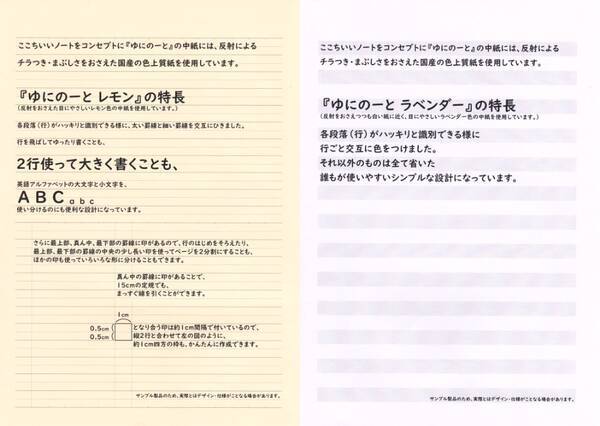 ここちいいノートをコンセプトに『ゆにのーと』の中紙には、反射による
チラつき・まぶしさをおさえた国産の色上質紙を使用しています。
『ゆにのーと レモン』の特長
（反射をおさえた目にやさしいレモン色の中紙を使用しています。）
各段落（行）がハッキリと識別できる様に、太い罫線と細い罫線を交互にひきました。
行を飛ばしてゆったり書くことも、
2行使って大きく書くことも、
英語アルファベットの大文字と小文字を、
ＡＢＣ a b c
使い分けるのにも便利な設計になっています。
さらに最上部、真ん中、最下部の罫線に印があるので、行のはじめをそろえたり、
最上部、最下部の罫線の中央の少し長い印を使ってページを2分割にすることも、
ほかの印も使っていろいろな形に分けることもできます。
真ん中の罫線に印があることで、
15cmの定規でも、
まっすぐ線を引くことができます。
1cm
0.5cm
0.5cm
となり合う印は約1cm間隔で付いているので、
縦2行と合わせて左の図のように、
約1cm四方の枠も、かんたんに作成できます。
サンプル製品のため、実際とはデザイン・仕様がことなる場合があります。
ここちいいノートをコンセプトに『ゆにのーと』の中紙には、反射による
チラつき・まぶしさをおさえた国産の色上質紙を使用しています。
『ゆにのーと ラベンダー』の特長
（反射をおさえつつも白い紙に近く、目にやさしいラベンダー色の中紙を使用しています。）
各段落（行）がハッキリと識別できる様に
行ごと交互に色をつけました。
それ以外のものは全て省いた
誰もが使いやすいシンプルな設計になっています。
サンプル製品のため、実際とはデザイン・仕様がことなる場合があります。